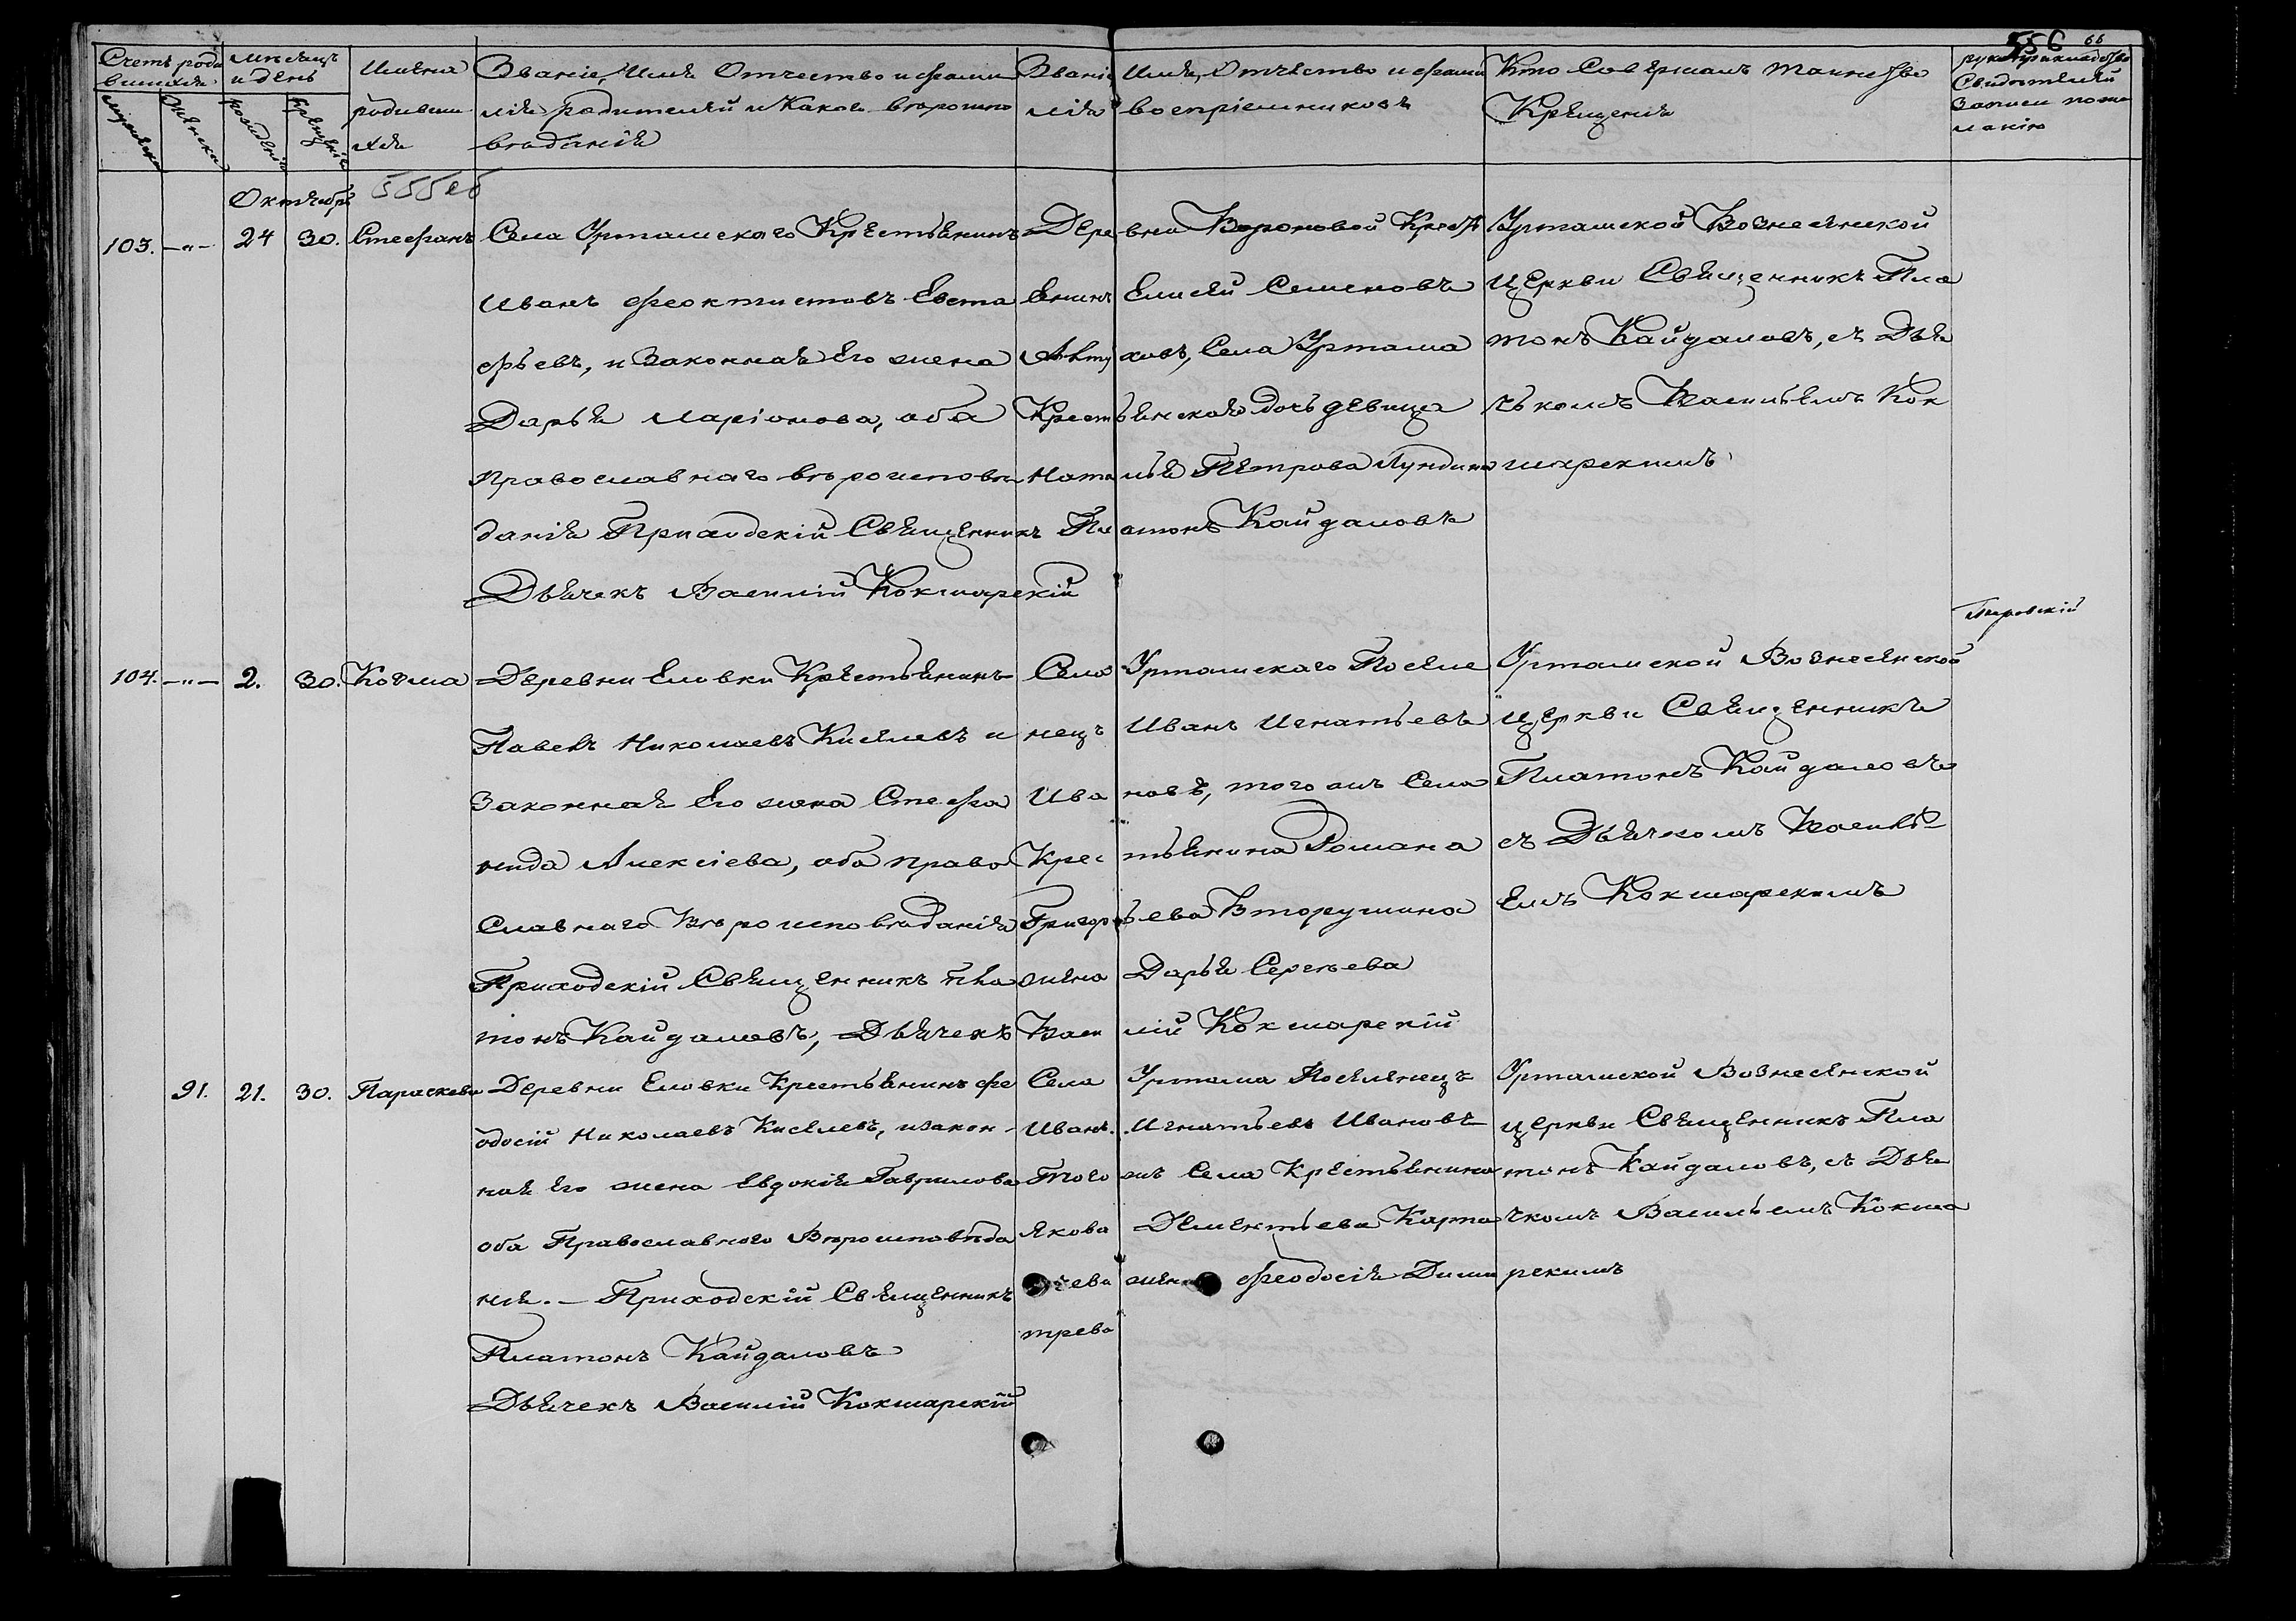 556 66
Счетъ роди
вшихся
мужеска
женска
Мѣсяцъ
и день
рожденія
крещенія
Имена
родивши
хся
Званіе, Имя Отчество и фами
лія родителей и какого вѣроиспо
вѣданія
Званіе Имя, Отчество и фами
лія воспріемниковъ
Кто Совершалъ таинство
Крещенія
рукоприкладство
Свидетелей
записи по же
ланію
Октября
555 об
103. —„— 24 30. Стефанъ
Села Уртамскаго Крестьянинъ
Иванъ Феоктистовъ Евста
фьевъ, и Законная Его жена
Дарья Ларіонова, оба
Православнаго вѣроисповѣ
данія Приходскій Священникъ Платонъ Кайдаловъ
Дьячекъ Василій Кокшарскій
Деревни Вороновой Крест
Енинъ Елисей Семеновъ
ховъ, Села Уртама
Крестьянская дочь девица
Наталья Петрова Лундина
Уртамской Вознесенской
Церкви Священникъ Пла
тонъ Кайдаловъ, съ Дья
чькомъ Василіемъ Кок
шарскимъ
104. —„— 2. 30. Козма
Деревни Еловки Крестьянинъ
Павелъ Николаевъ Киселевъ и
Законная Его жена Стефа
нида Алексіева, оба право
Славнаго Вѣроисповѣданія
Приходскій Священникъ Пла
тонъ Кайдаловъ, Дьячекъ Василій Кокшарскій
Села Уртамскаго Поселе
нецъ Иванъ Игнатьевъ
Ивановъ, того жъ Села
Крестьянина Романа
Григорьева Вторушина
жена Дарья Сергѣева
Уртамской Вознесенской
Церкви Священникъ
Платонъ Кайдаловъ
съ Дьячкомъ Василі
Емъ Кокшарскимъ
91. 21. 30. Параскева
Деревни Еловки Крестьянинъ Фе
одосій Николаевъ Киселевъ, и закон
ная Его жена Евдокія Гаврилова
оба Православнаго Вѣроисповѣда
нія. — Приходскій Священникъ
Платонъ Кайдаловъ
Дьячекъ Василій Кокшарскій
Села Уртама Поселенецъ
Иванъ Игнатьевъ Ивановъ
Того жъ Села Крестьянина
Якова Дементьева Карпа
чева жена Феодосія Дими
трева
Уртамской Вознесенской
церкви Священникъ Пла
тонъ Кайдаловъ, съ Дья
чкомъ Васильемъ Кокша
рскимъ